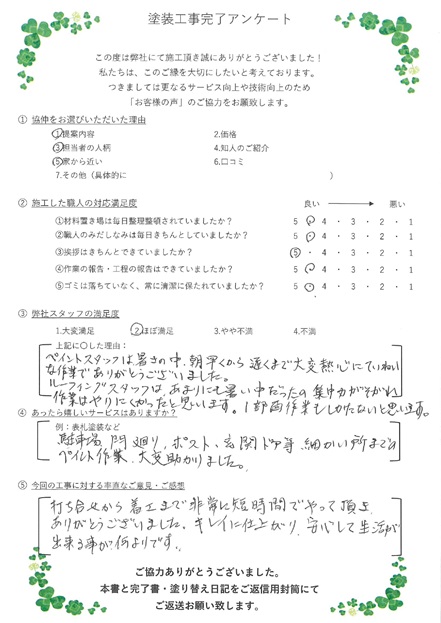 塗装工事完了アンケート
この度は弊社にて施工頂き誠にありがとうございました!
私たちは、このご縁を大切にしたいと考えております。
つきましては更なるサービス向上や技術向上のため
「お客様の声」のご協力をお願致します。
① 協伸をお選びいただいた理由
1.提案内容 2.価格
3.担当者の人柄 4.知人のご紹介
5.家から近い 6.口コミ
7.その他(具体的に )
② 施工した職人の対応満足度 良い 悪い
①材料置き場は毎日整理整頓されていましたか? 5 ・ 4 ・ 3 ・ 2 ・ 1
②職人のみだしなみは毎日きちんとしていましたか? 5 ・ 4 ・ 3 ・ 2 ・ 1
③挨拶はきちんとできていましたか? 5 ・ 4 ・ 3 ・ 2 ・ 1
④作業の報告・工程の報告はできていましたか? 5 ・ 4 ・ 3 ・ 2 ・ 1
⑤ゴミは落ちていなく、常に清潔に保たれていましたか? 5 ・ 4 ・ 3 ・ 2 ・ 1
③ 弊社スタッフの満足度
1.大変満足 2.ほぼ満足 3.やや不満 4.不満
上記に〇した理由:
ペイントスタッフは暑さの中、朝早くから遅くまで大変熱心にていねい
な作業でありがとうございました。
ルーフィングスタッフは、あまりにも暑い中だったの集中力がそがれ
作業はやりにくかったと思います。1部雨作業もしかたないと思います。
④ あったら嬉しいサービスはありますか?
例:表札塗装など
駐車場、門廻り、ポスト、玄関ドア等 細かい所まで
ペイント作業、大変助かりました。
⑤ 今回の工事に対する率直なご意見・ご感想
打ち合せから着工まで非常に短時間でやって頂き
ありがとうございました。キレイに仕上がり、安心して生活が
出来る事が何よりです。
ご協力ありがとうございました。
本書と完了書・塗り替え日記をご返信用封筒にて
ご返送お願い致します。